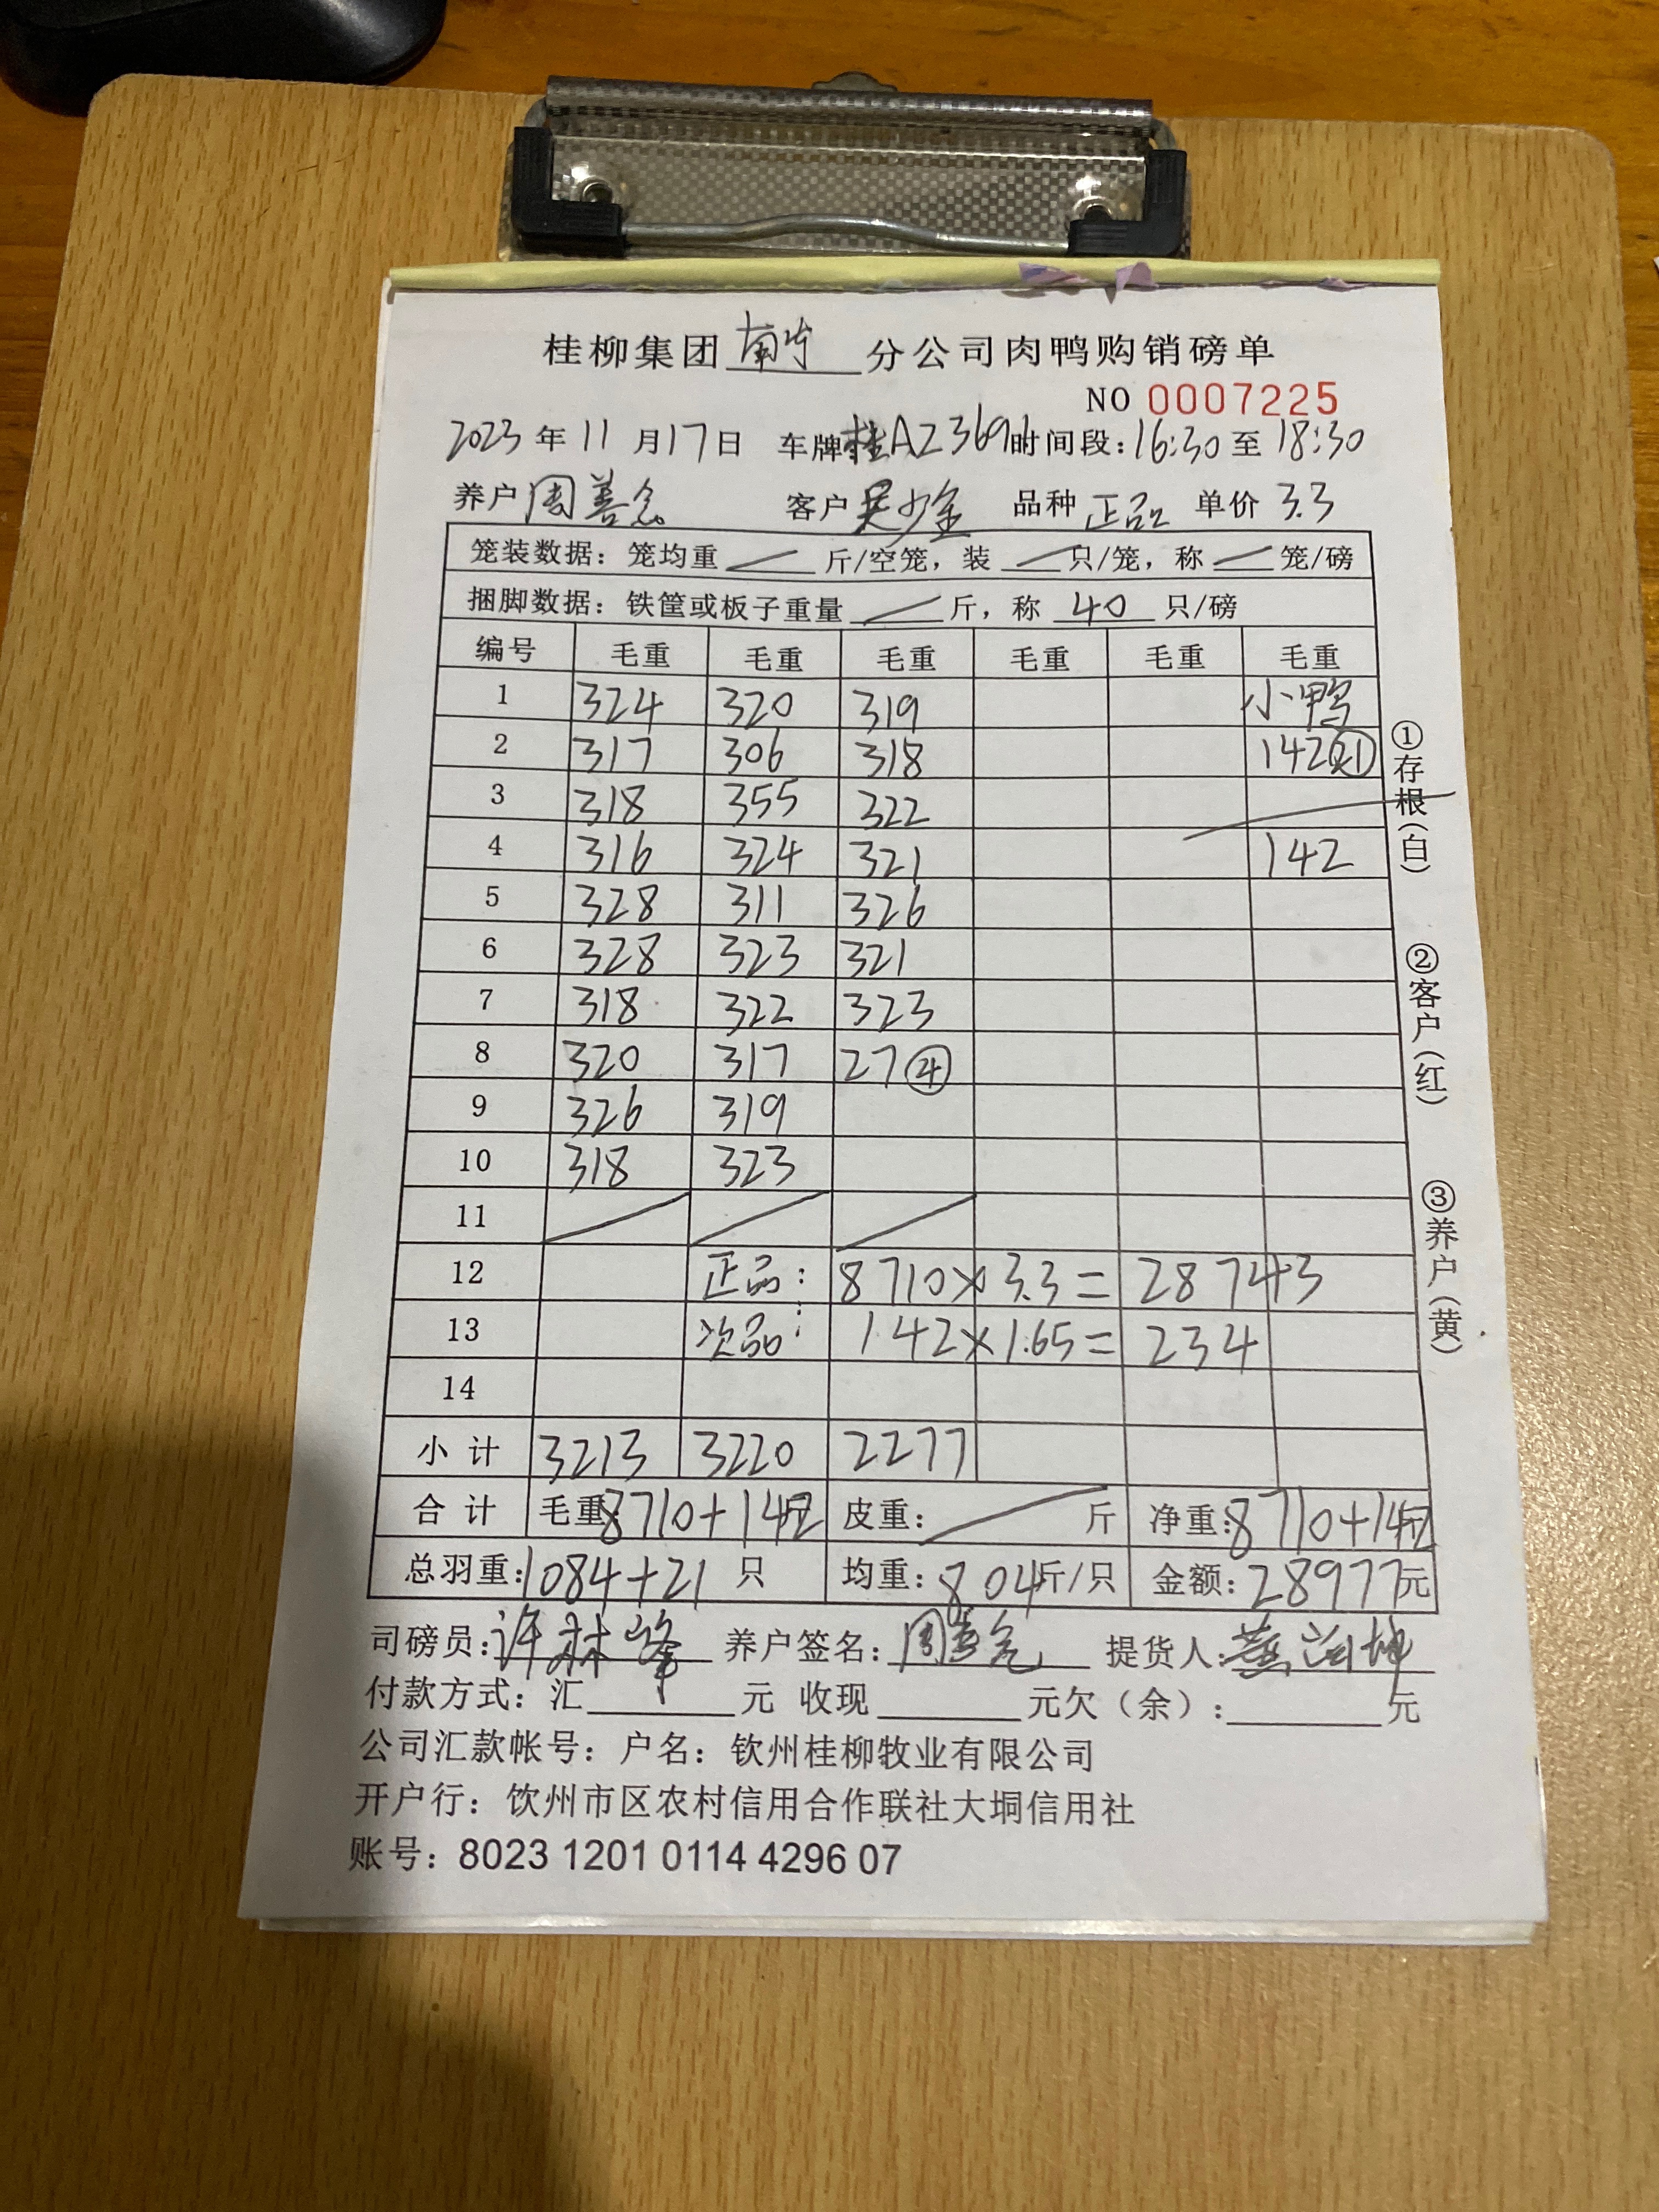 桂柳集团南宁分公司肉鸭购销磅单
NO 0007225
2023年11月17日 车牌桂AZ369 时间段:16:30至18:30
养户周善 客户吴少金 品种正品 单价3.3
笼装数据:笼均重/斤/空笼,装/只/笼,称/笼/磅
捆脚数据:铁筐或板子重量/斤,称40只/磅
编号 毛重 毛重 毛重 毛重 毛重 毛重
1 324 320 319 小鸭
2 317 306 318 142㉑
3 318 355 322
4 316 324 321 142
5 328 311 326
6 328 323 321
7 318 322 323
8 320 317 27④
9 326 319
10 318 323
11 / / /
12 正品: 8710×3.3=28743
13 次品: 142×1.65=234
14
小计 3213 3220 2277
合计 毛重:8710+142 皮重:/斤 净重:8710+142
总羽重:1084+21只 均重:8.04斤/只 金额:28977元
司磅员:许林峰 养户签名:周善 提货人:
付款方式:汇 元 收现 元欠(余): 元
公司汇款帐号:户名:钦州桂柳牧业有限公司
开户行:钦州市区农村信用合作联社大垌信用社
账号:8023 1201 0114 4296 07
①存根(白)
②客户(红)
③养户(黄)